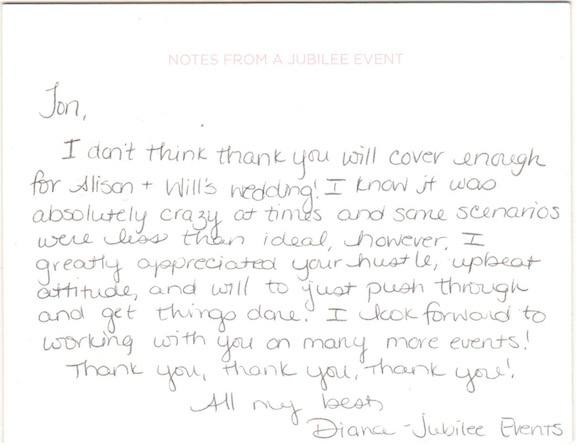 NOTES FROM A JUBILEE EVENT
Jon,
I don't think thank you will cover enough
for Alison + Will's wedding! I know it was
absolutely crazy at times and some scenarios
were less than ideal, however, I
greatly appreciated your hustle, upbeat
attitude, and will to just push through
and get things done. I look forward to
working with you on many more events!
Thank you, thank you, thank you!
All my best,
Diana - Jubilee Events